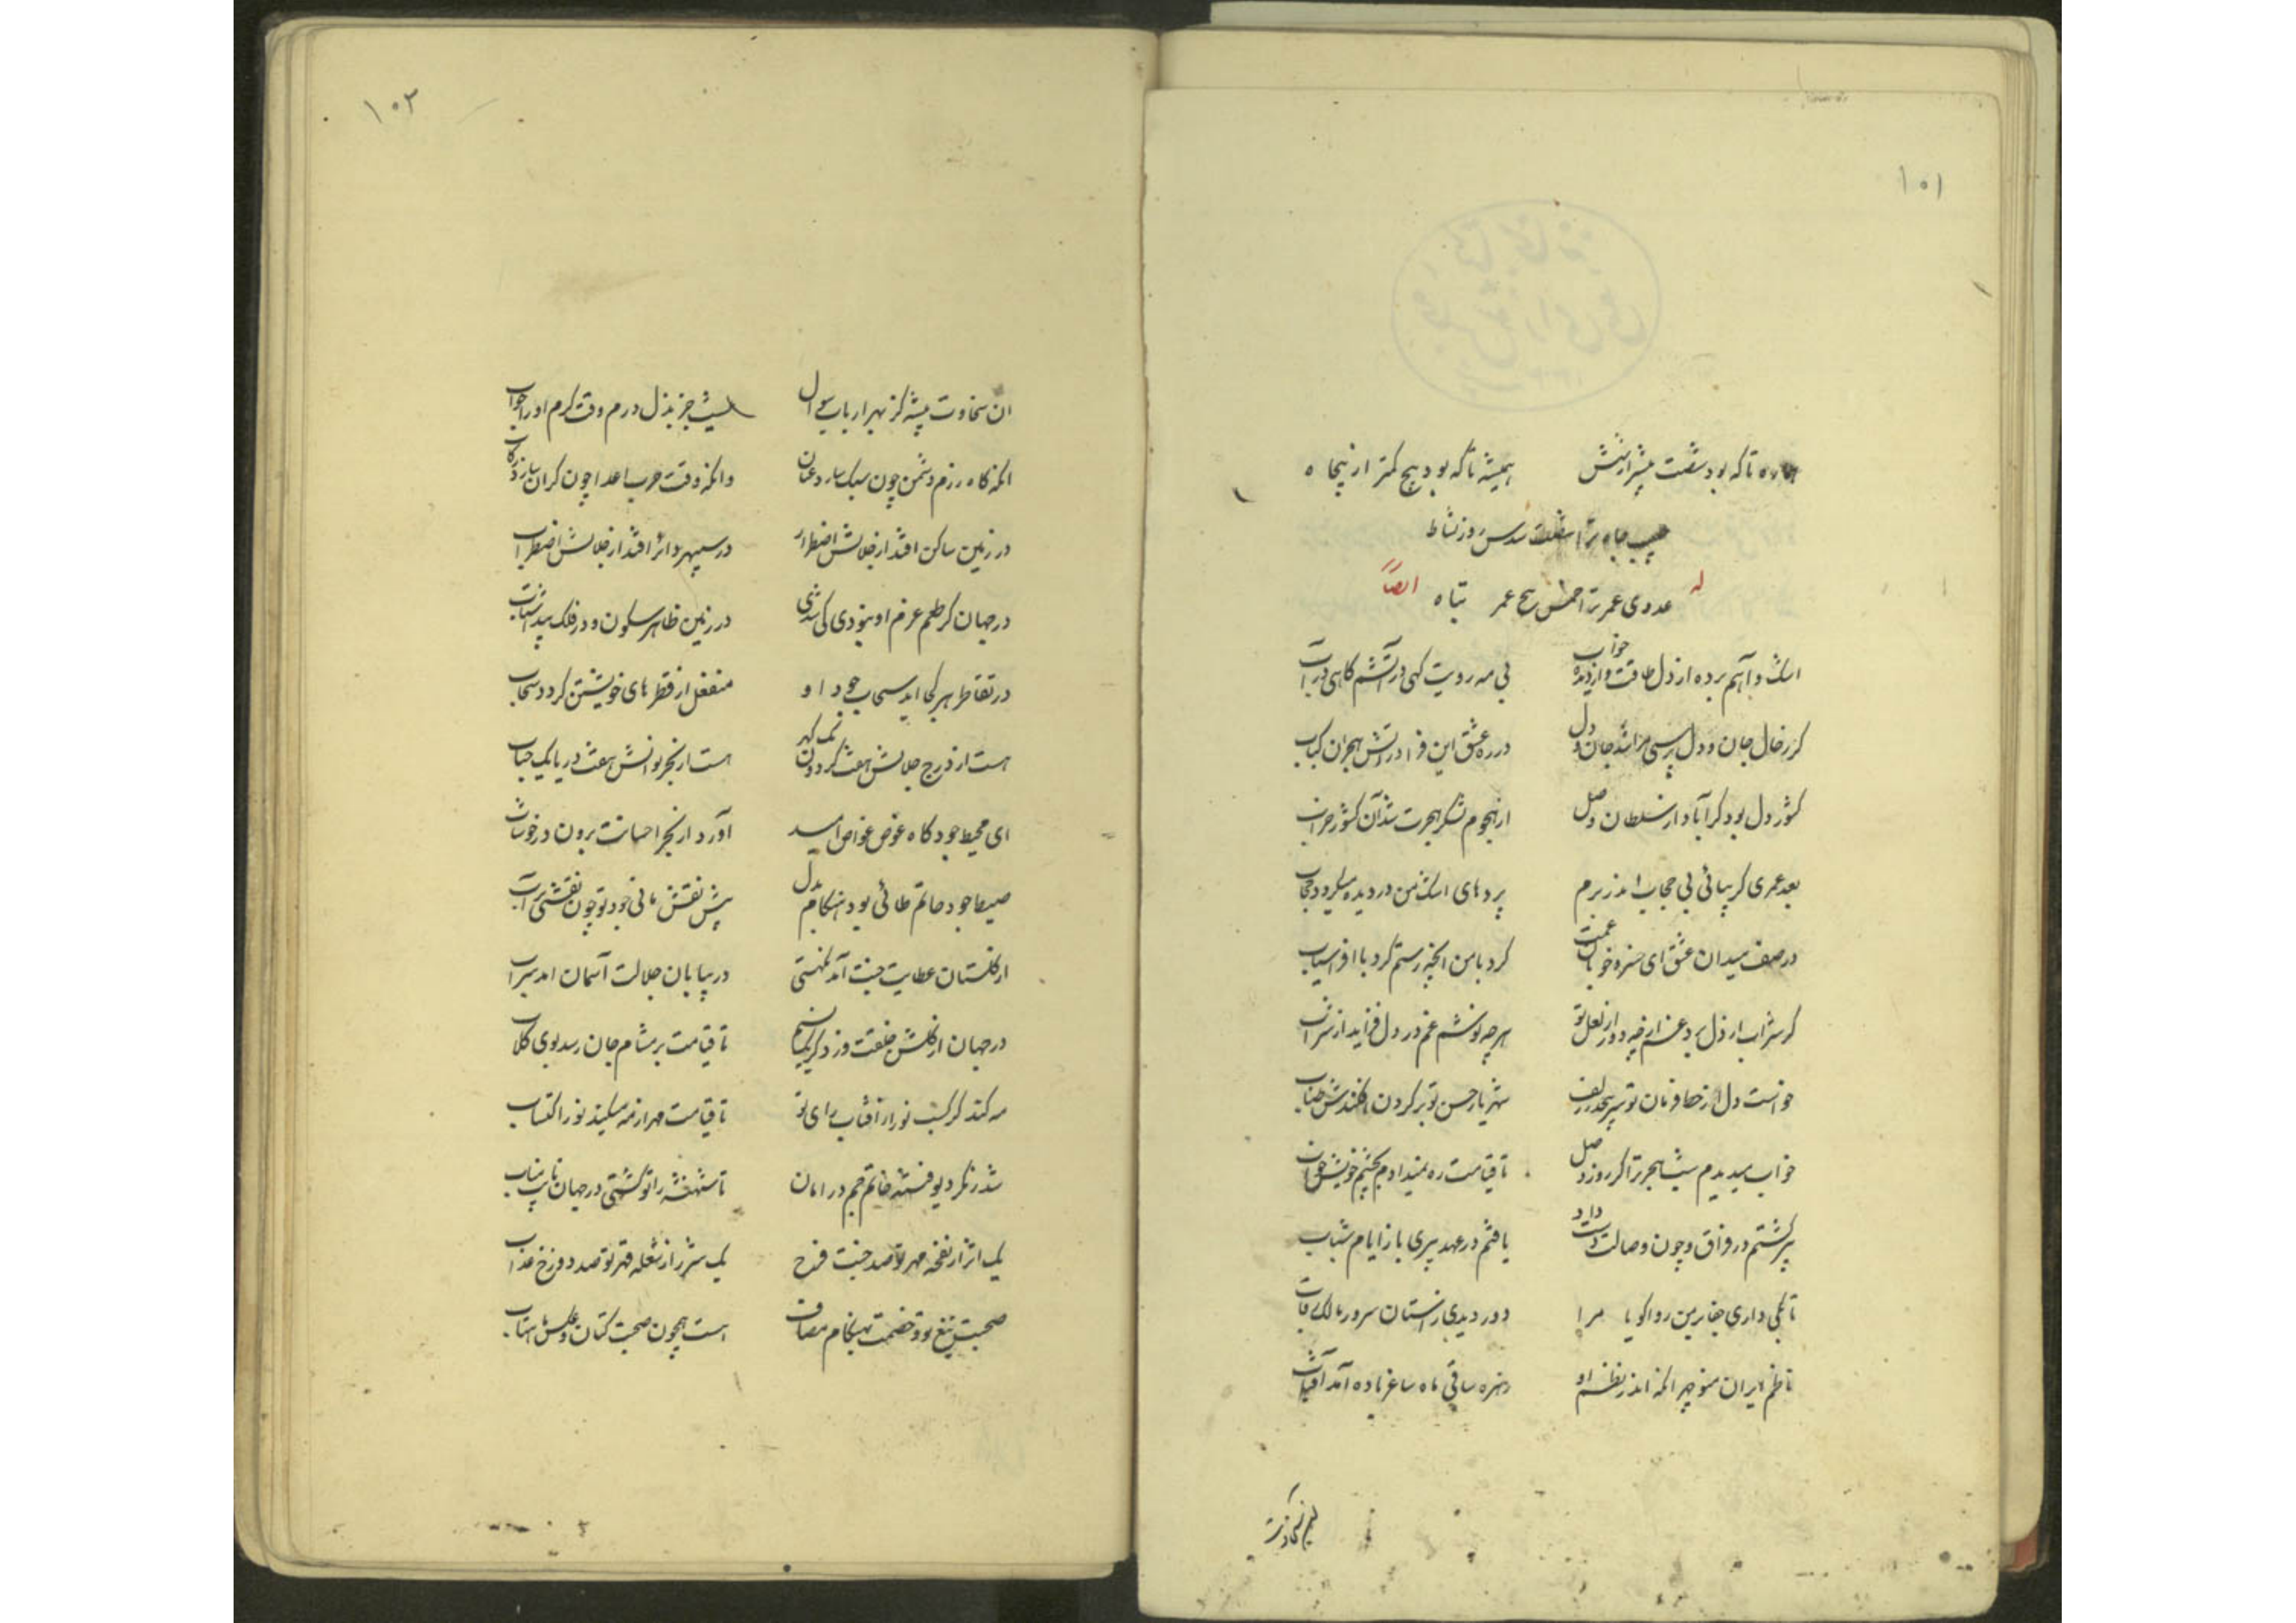 ۱۰۱
هماره تا که بود شصت بیشتر از شش همیشه تا که بود پنج کمتر از پنجاه
حبیب جاه ترا شصت سدس روز نشاط
له ایضاً
عدوی عمر ترا خمس پنج عمر تباه
اشک و آهم برده از دل طاقت و از دیده خواب بی مه رویت گهی در آتشم گاهی در آب
گر ز حال جان و دل پرسی مرا شد جان و دل در ره عشق این فدا در آتش هجران کباب
کشور دل بود گر آباد از سلطان وصل از هجوم لشکر هجرت شد آن کشور خراب
بعد عمری گر بیائی بی حجاب اندر برم پردهای اشک من در دیده میگردد حجاب
در صف میدان عشق ای خسرو خوبان غمت کرد با من آنچه رستم کرد با افراسیاب
گر شراب از دل برد غم از چه دور از لعل تو هر چه نوشم غم در دل فزاید از شراب
خواست دل از خط فرمان تو سر پیچد ز زلف شهریار حسن تو بر گردن افکندش طناب
خواب میدیدم شب هجر ترا گر روز وصل تا قیامت ره نمیدادم بچشم خویش خواب
پیر گشتم در فراق و چون وصالت دست داد یافتم در عهد پیری باز ایام شباب
تا بکی داری جفا بر من روا گویا مرا دور دیدی ز آستان سرور مالک رقاب
ناظم ایران منوچهر آنکه اندر بزم او زهره ساقی ماه ساغر باده آمد آفتاب
۱۰۲
آن سخاوت پیشه کز بهر ارباب سوال نیستش جز بذل درم وقت کرم او را جواب
آنکه گاه رزم دشمن چون سبک سازد عنان وانکه وقت حرب اعدا چون گران سازد رکاب
در زمین ساکن افتد از جلالش اضطرار در سپهر دائر افتد از جلالش اضطراب
در جهان گر حلم عزم او نبودی کی شدی در زمین ظاهر سکون و در فلک پیدا شتاب
در تقاطر هر کجا آید سحاب جود او منفعل از قطرهای خویشتن گردد سحاب
هست از درج جلالش هفت گردون یک گهر هست از بحر نوالش هفت دریا یک حباب
ای محیط جود گاه غوص غواص امید آورد از بحر احسانت برون در خوشاب
صیت جود حاتم طائی بود هنگام بذل پیش نقش مانی جود تو چون نقشی بر آب
از گلستان عطایت جنت آمد نکهتی در بیابان جلالت آسمان آمد سراب
در جهان از گلشن خلقت وزد گر یک نسیم تا قیامت بر مشام جان رسد بوی گلاب
مه کند گر کسب نور از آفتاب رای تو تا قیامت مهر از مه میکند نور اکتساب
شد ز مکر دیو فتنه خاتم جم در امان تا شهنشه را تو گشتی در جهان نایب مناب
یک اثر از نفخه مهر تو صد جنت فرح یک شرر از شعله قهر تو صد دوزخ عذاب
صحبت تیغ تو و خصمت بهنگام مصاف هست همچون صحبت کتان و عکس ماهتاب